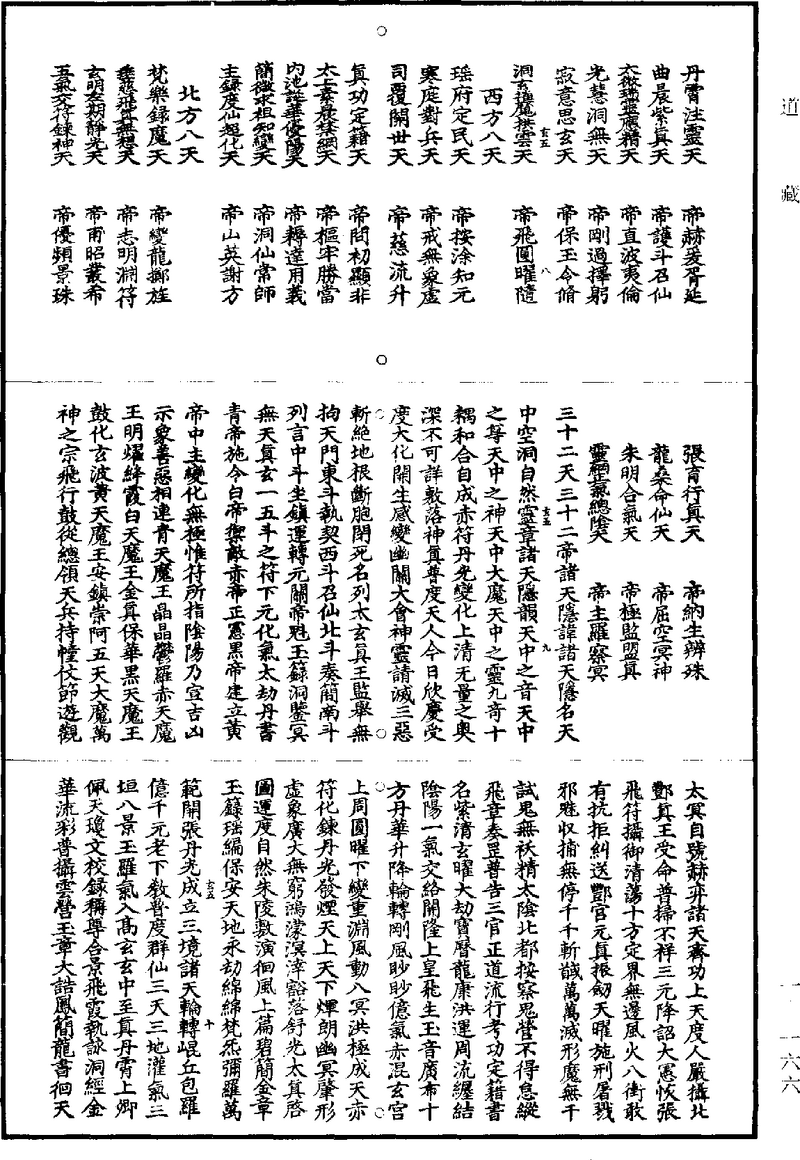 道藏
丹霄注靈天　帝赫爰胥延
曲晨紫真天　帝護斗召仙
帝直波夷倫
光慧洞無天　帝剛過擇躬
寂意思玄天　帝保王令脩
帝飛圓曜隨
西方八天
瑶府定民天　帝按涂知元
寒庭對兵天　帝戒無象虛
司覆開丗天　帝慈流升
真功定籍天　帝問初顯非
帝樞牢勝當
帝轉達用義
簡微求祖知變天　帝洞仙常師
主録度仙超化天　帝山英謝方
北方八天
梵樂録魔天　帝變龍擲旌
帝志明淵符
帝甫昭叢希
五氣交符鍊神天　帝優頻景珠
張育行真天　帝納生辨殊
龍桑命仙天　帝屈空冥神
朱明合氣天　帝極監盟真
帝主羅察冥
三十二天三十二帝諸天隱諱諸天隱名天
中空洞自然靈章諸天隱韻天中之音天中
之尊天中之神天中大魔天中之靈九奇十
耦和合自成赤符丹光變化上清无量之奥
深不可詳敷落神真普度天人今日欣慶受
度大化開生感變幽關大會神靈請滅三惡
斬絶地根斷胞閉死名列太玄真王監舉無
拘天門東斗執契西斗召仙北斗奏簡南斗
列言中斗坐鎮運轉元關帝魁玉籙洞鑒冥
無天真玄一五斗之符下元化氣太劫丹書
青帝施令白帝禦敵赤帝正憲黑帝建立黄
帝中主變化無極惟符所指陰陽乃宣吉凶
示象善惡相連青天魔王晶晶鬱羅赤天魔
王明燿絳霞白天魔王金真保華黑天魔王
鼓化玄波黄天魔王安鎮崇阿五天大魔萬
神之宗飛行鼓從總領天兵持幢仗節遊觀
太冥自號赫弈諸天齊功上天度人嚴攝北
酆真王受命普掃不祥三元降詔大憲恢張
飛符攝御清蕩十方定界無邊風火八衝敢
有抗拒糾送酆官元真振劒天曜施刑屠戮
邪魅收捕無停千千斬馘萬萬滅形魔無干
試鬼無袄精太陰北都按察鬼營不得怠縱
飛章奏罡普告三官正道流行考功定籍書
名紫清玄曜大劫寶曆龍康洪運周流纏結
陰陽一氣交絡開隆上皇飛生玉音廣布十
方丹華升降輪轉剛風眇眇億氣赤混玄宫
上周圓曜下變重淵風動八冥洪極成天赤
符化鍊丹光發煙天上天下煇朗幽冥肇形
虛象廣大無窮鴻濛溟涬豁落舒光太真啓
圖運度自然朱陵敷演徊風上篇碧簡金章
玉籙瑶編保安天地永劫綿綿梵炁彌羅萬
範開張丹光成立三境諸天輪轉崐丘包羅
億千元老下教普度群仙三天三地灌氣三
垣八景玉羅氣入髙玄玄中至真丹霄上卿
佩天瓊文校録稱舉合景飛霞執詠洞經金
華流彩普攝雲營玉章大誥鳳簡龍書徊天
一　一六六